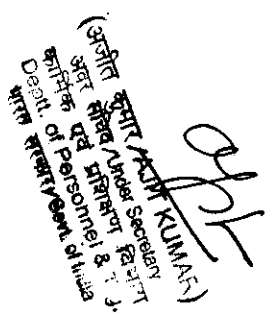 (अजीत कुमार/AJIT KUMAR)
अवर सचिव/Under Secretary
कार्मिक एवं प्रशिक्षण विभाग
Deptt. of Personnel & T
भारत सरकार/Govt. of India